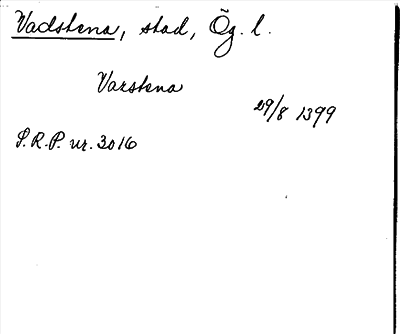 Vadstena, stad, Ög. l.
Varstena
29/8 1399
S.R.P. nr. 3016